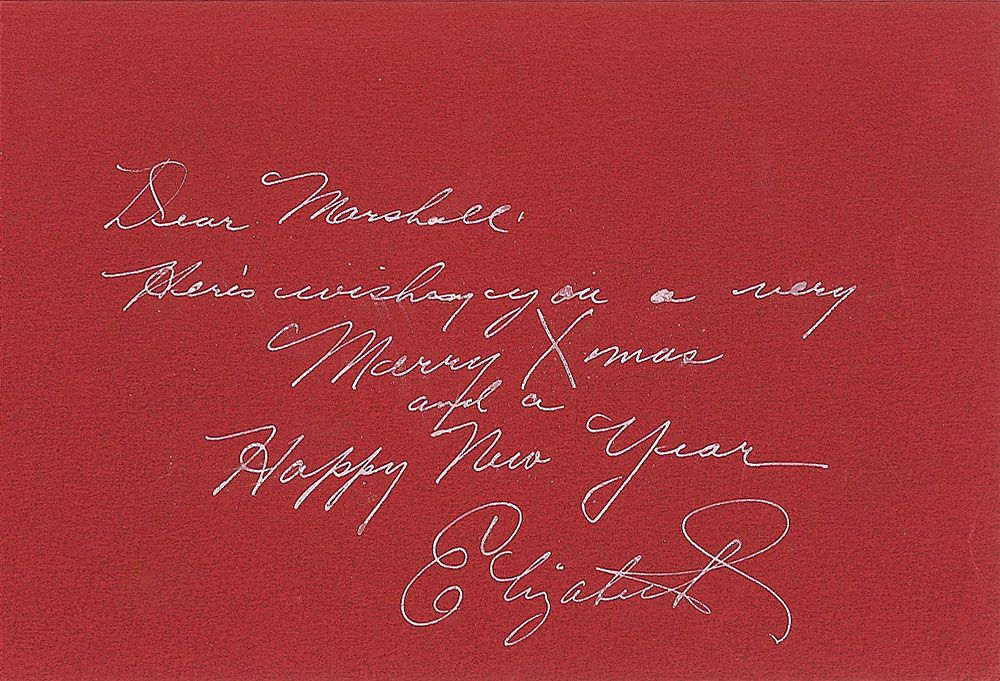 Dear Marshall:
Here's wishing you a very
Merry Xmas
and a
Happy New Year
Elizabeth